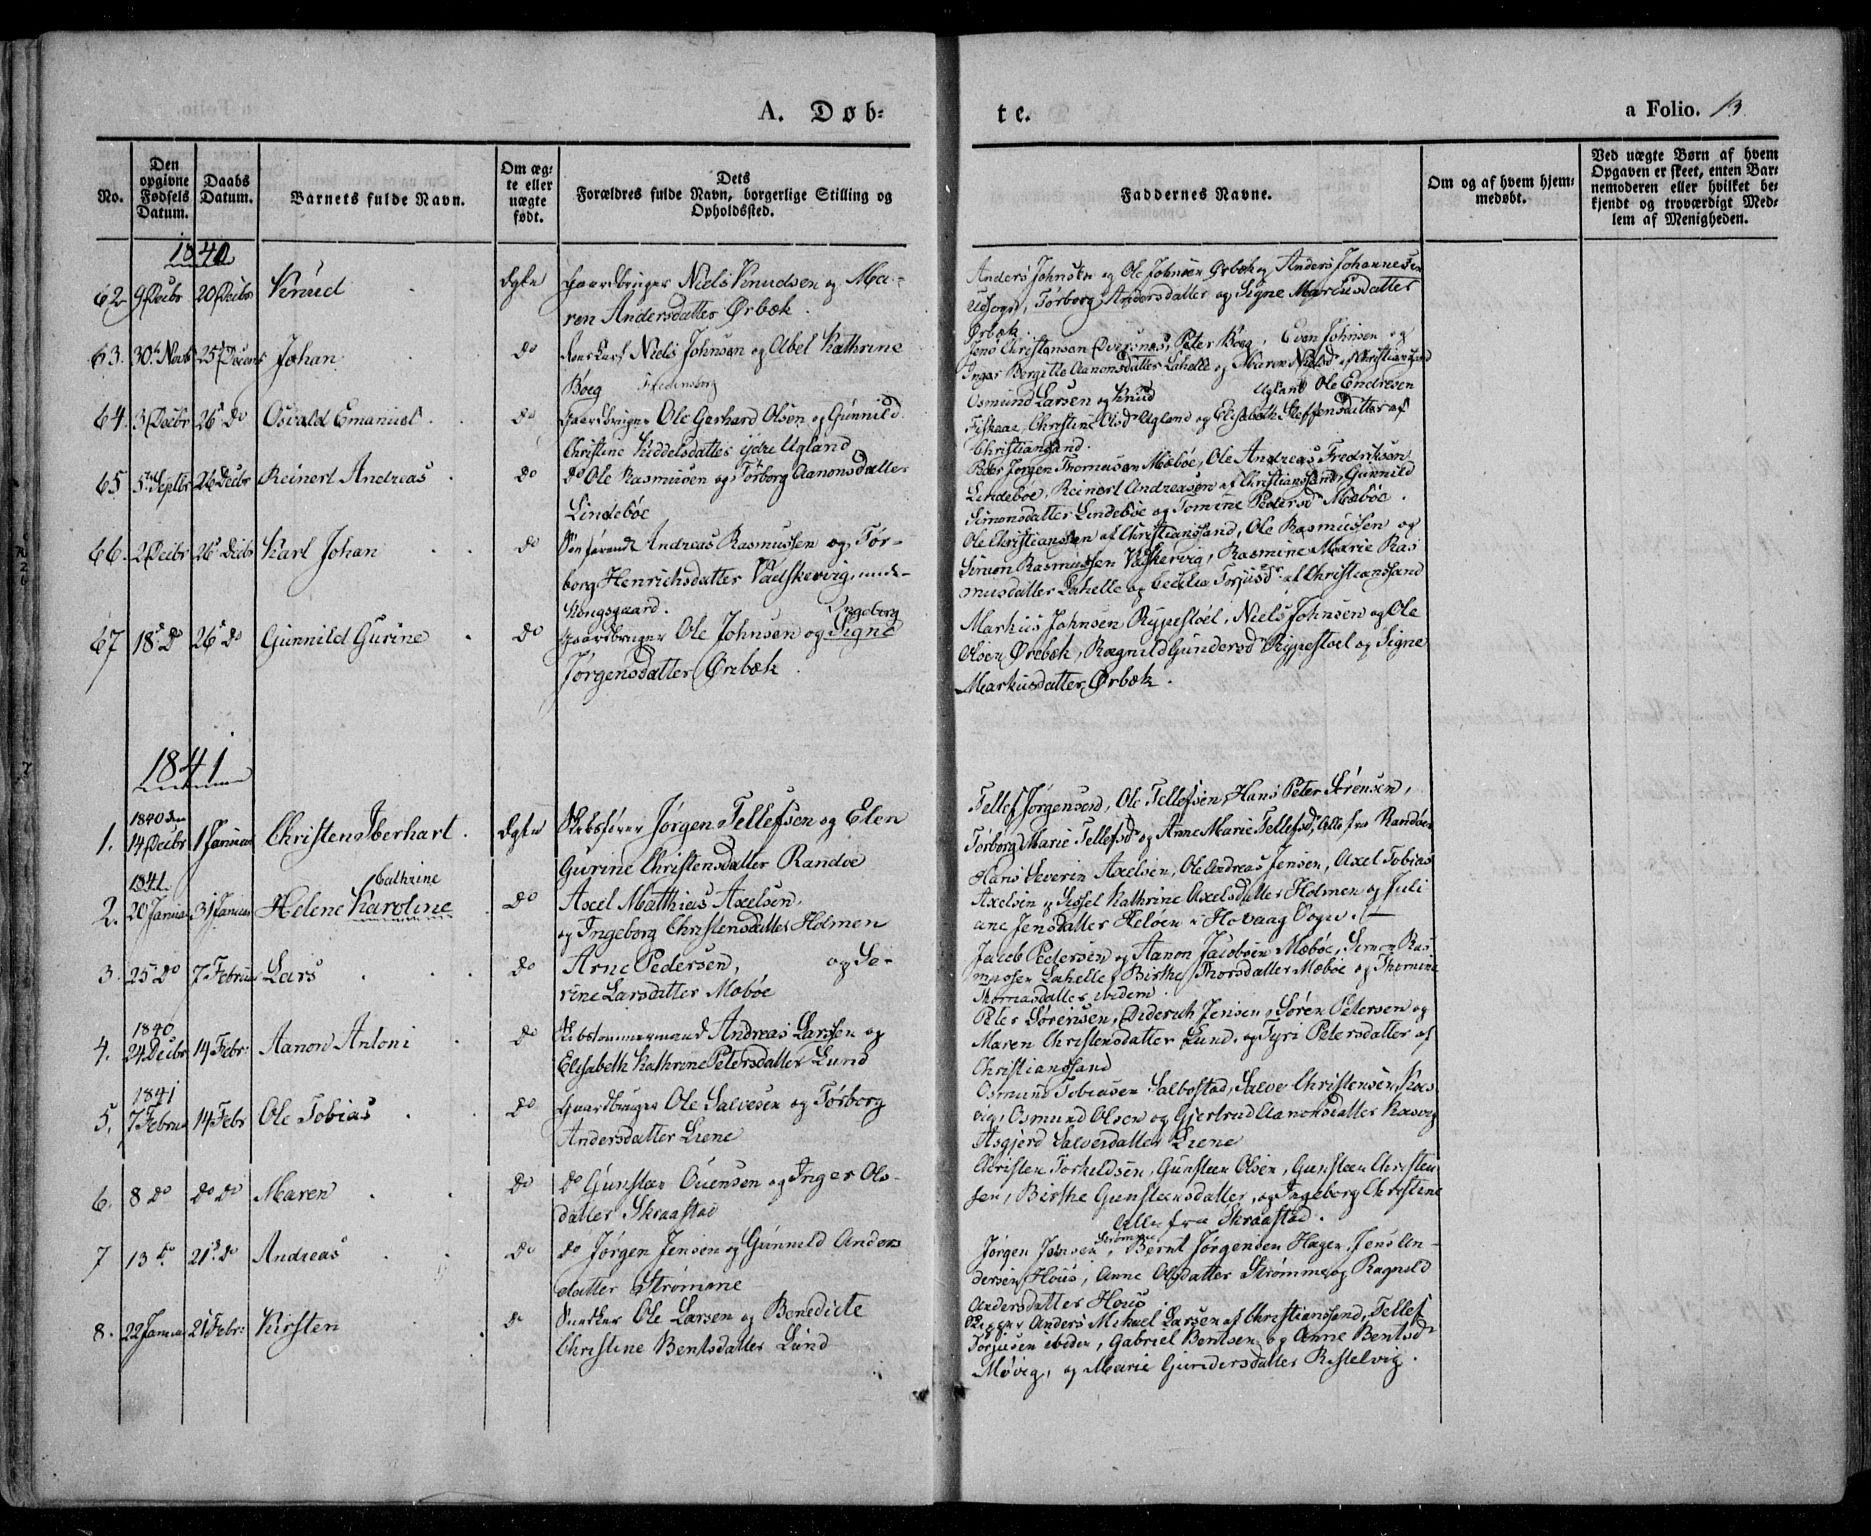 A. Døb-
te.
a Folio. 13
No.
Den opgivne Fødsels Datum.
Daabs Datum.
Barnets fulde Navn.
Om ægte eller uægte født.
Dets
Forældres fulde Navn, borgerlige Stilling og
Opholdssted.
Faddernes Navne.
Om og af hvem hjem-
medøbt.
Ved uægte Børn af hvem
Opgaven er skeet, enten Bar-
nemoderen eller hvilket be-
kjendt og troværdigt Med-
lem af Menigheden.
1840
62 9 Decbr 20 Decbr Knud Ægte Gaardbruger Niels Knudsen og Ma-
ren Andersdatter Ørbæk.
Anders Johnsen og Ole Johnsen Ørbæk og Anders Johannesen
Torborg Andersdatter og Signe Marcusdatter
Ørbæk.
63. 30te Novb 25de Decemb Johan do Niels Johnsen og Abel Kathrine
Boeg
Jens Christensen Peter Boeg, Even Johnsen og
Inger Bergitte Aanonsdatter Lahelle og Maren Nielsd. af Christiansand
64. 3 Decbr 26 do Osvald Emanuel do Gaardbruger Ole Gerhard Olsen og Gunnild
Christine Kiddelsdatter ydre Ugland
Osmund Larsen og Knud Ugland Ole Endresen
Fiskaae, Christine Olsd. Ugland og Elisabeth Steffensdatter af
Christiansand.
65 5te Septbr 26 Decbr Reinert Andreas do do Ole Rasmusen og Torborg Aanonsdatter
Lindebøe
Peder Jørgen Thomassen Mæbøe, Ole Andreas Fredriksen
Lindebøe, Reinert Andreasen af Christianssand, Gunnild
Simonsdatter Lindebøe og Tomine Pedersd. Mæbøe.
66. 2 Decbr 26 Decb Karl Johan do Andreas Rasmussen og Tor-
borg Henrichsdatter Vadskervig, unde-
Kongsgaard.
Ole Christianssen af Christianssand, Ole Rasmussen og
Simon Rasmussen Vaskervig, Rasmine Marie Ras
musdatter Lahelle og Cecilia Torjusd. af Christianssand
67 18 do 26 do Gunnild Gurine do Gaardbruger Ole Johnsen og Signe Ingeborg
Jørgensdatter Ørebæk.
Markus Johnsen Rypestøel, Niels Johnsen og Ole
Olsen Ørebæk, Ragnild Gundersd. Rypestoel og Signe
Markusdatter Ørbæk.
1841
1. 1840 den 14 Decbr 1 Januar Christen Iberhart. Ægte Skibsfører Jørgen Tellefsen og Elen
Gurine Christensdatter Randøe
Tellef Jørgensen, Ole Tellefsen, Hans Peter Sørensen,
Torborg Marie Tellefsd. og Anne Marie Tellefsd., alle fra Randøen
2. 1841. 20 Januar 31 Januar Helene Karoline Cathrine do Axel Matthias Axelsen,
og Ingeborg Christensdatter Holmen
Hans Severin Axelsen, Ole Andreas Jensen, Axel Tobias
Axelsen og Sissel Kathrine Axelsdatter Holmen og Juli
ane Jensdatter Heløen i Høvaag Sogn.
3. 25 do 7 Februar Lars do Arne Pedersen, og Se-
rine Larsdatter Mæbøe
Jacob Pedersen og Aanon Jacobsen Mæbøe, Simon Ras
mussen Lahelle, Birthe Thorsdatter Mæbøe og Thomine
Thomasdatter ibidem.
4. 1840 24 Decbr 14 Febr: Aanon Antoni do Skibstømmermand Andreas Larsen og
Elisabeth Kathrine Petersdatter Lund
Peter Sørensen, Diderich Jensen, Søren Petersen og
Maren Christensdatter Lund, og Syri Petersdatter af
Christianssand
5. 1841 7 Februar 14 Febr Ole Tobias do Gaardbruger Ole Salvesen og Torborg
Andersdatter Liene
Osmund Tobiasen Salbostad, Salve Christensen Kos-
vig, Osmund Olsen og Gjertrud Aanonsdatter Kosvig
Asgjerd Salvesdatter Liene
6. 8 do do do Maren do do Gunsten Evensen og Inger Ols-
datter Skraastad
Christen Torkildsen, Gunsteen Olsen, Gunsteen Christen
sen, Birthe Gunsteensdatter, og Ingeborg Christine
Alle fra Skraastad.
7 13 do 21 do Andreas do do Jørgen Jensen og Gunnild Anders
datter Strømme
Jørgen Jensen Strømme, Bernt Jørgensen Hagen, Jens An-
dersen Hous, Anne Olsdatter Strømme og Ragnild
Andersdatter Hous
8. 22 Januar 21 Febr: Kirsten do Ole Larsen og Benedicte
Christine Bentsdatter Lund
Skipper Anders Michael Larsen af Christianssand, Tellef
Torjusen ibidem, Gabriel Bentsen og Anne Bentsd.
Møvig, og Marie Gundersdatter Ristelvig.